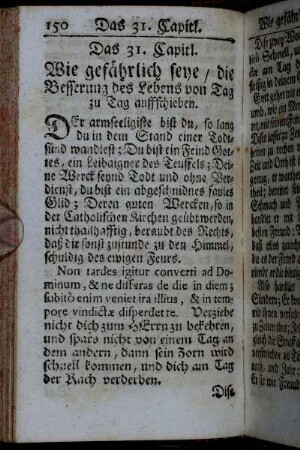 150 Das 31. Capitl.
Das 31. Capitl.
Wie gefährlich seye / die
Besserung des Lebens von Tag
zu Tag auffschieben.
DEr armseeligiste bist du, so lang
du in dem Stand einer Todt-
sünd wandlest; Du bist ein Feind Got-
tes, ein Leibaigner des Teuffels; Dei-
ne Werck seynd Todt und ohne Ver-
dienst, du bist ein abgeschnidnes faules
Glid; Deren guten Wercken, so in
der Catholischen Kirchen geübt werden,
nicht theilhafftig, beraubt des Rechts,
daß dir sonst zustunde zu den Himmel,
schuldig des ewigen Feurs.
Non tardes igitur converti ad Do-
minum, & ne differas de die in diem;
subitò enim veniet ira illius, & in tem-
pore vindictæ disperdet te. Verziehe
nicht dich zum HErrn zu bekehren,
und spars nicht von einem Tag an
dem andern, dann sein Zorn wird
schnell kommen, und dich am Tag
der Rach verderben.
Dise